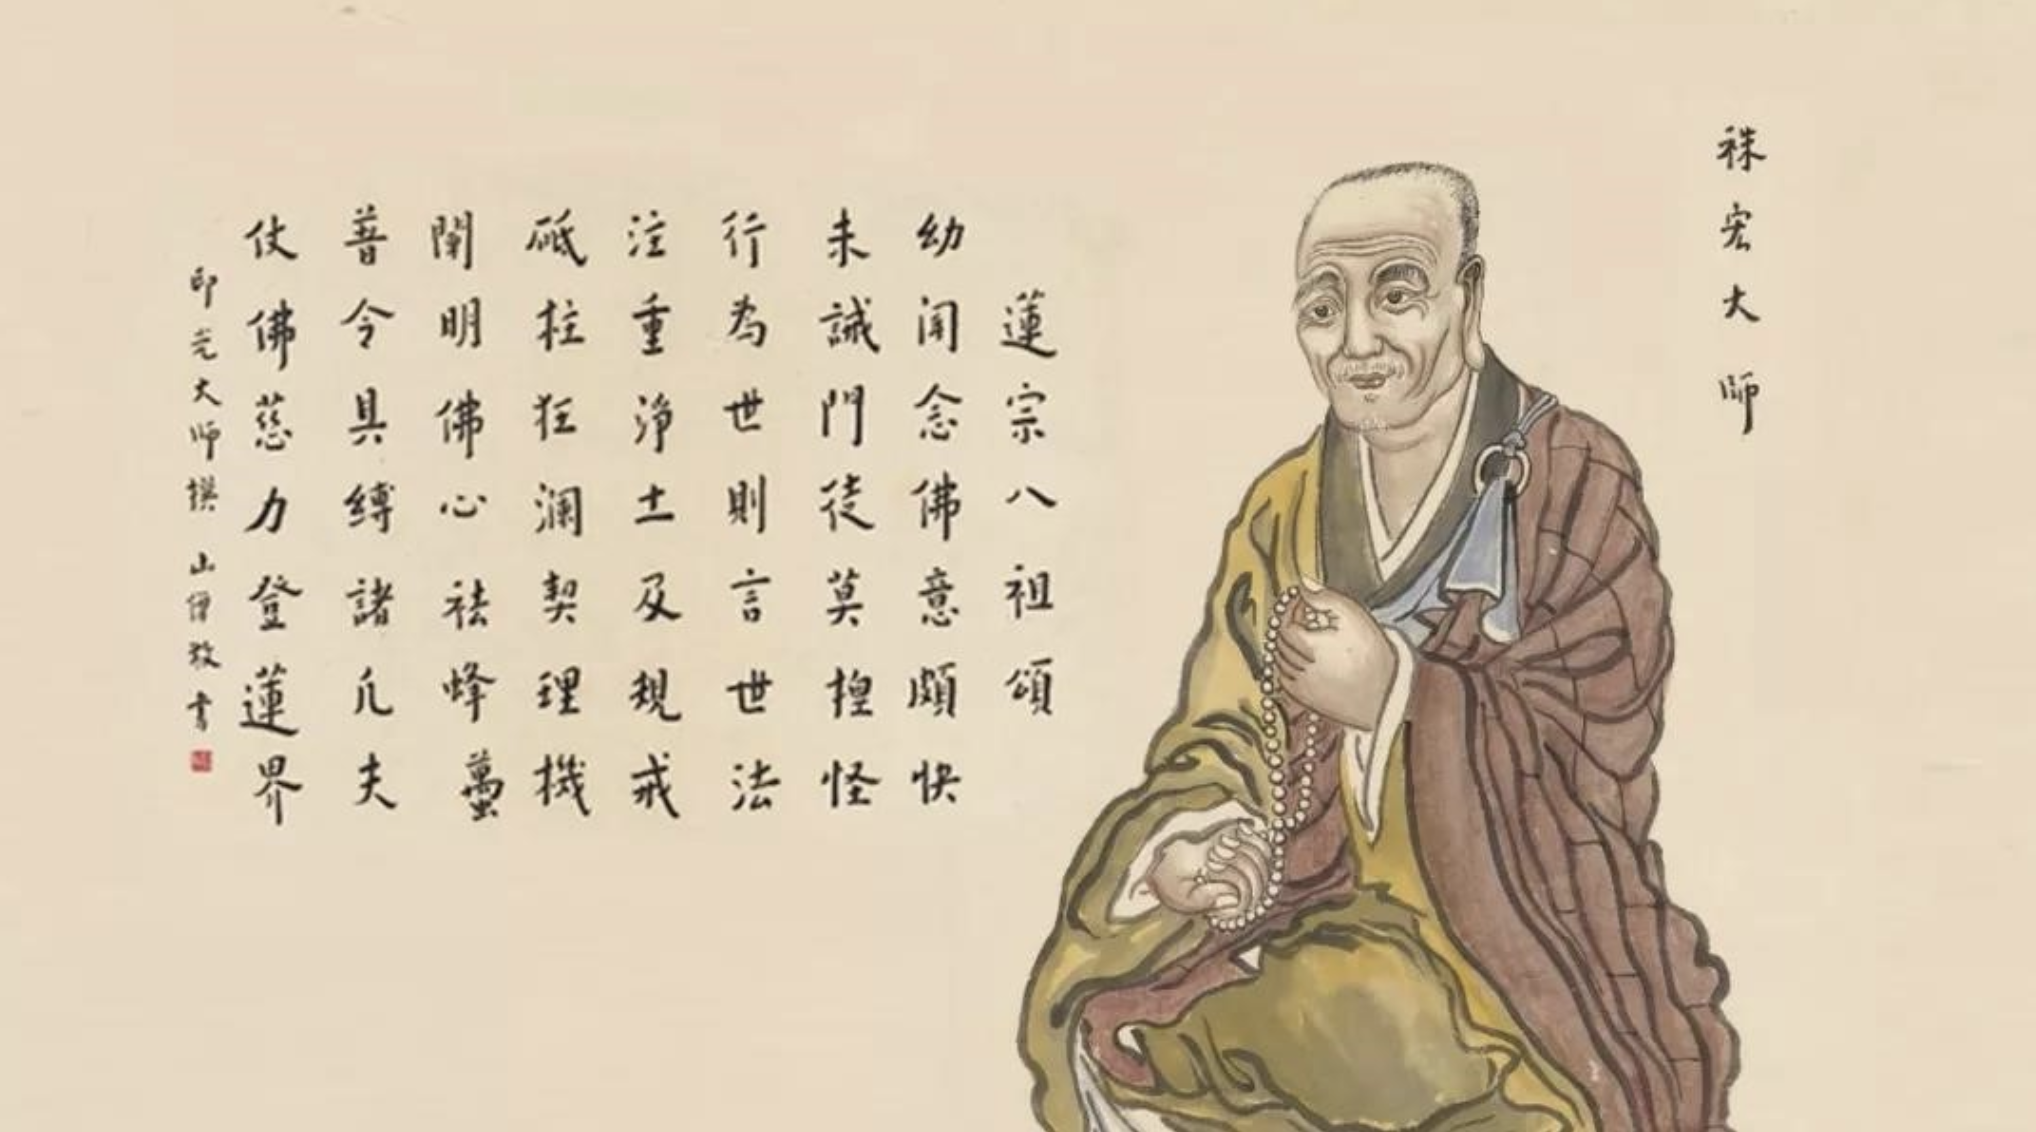 袾宏大師
蓮宗八祖頌
幼聞念佛意頗快
末誡門徒莫捏怪
行為世則言世法
注重淨土及規戒
砥柱狂瀾契理機
闡明佛心祛蜂蠆
普令具縛諸凡夫
仗佛慈力登蓮界
印光大師撰 山僧敬書